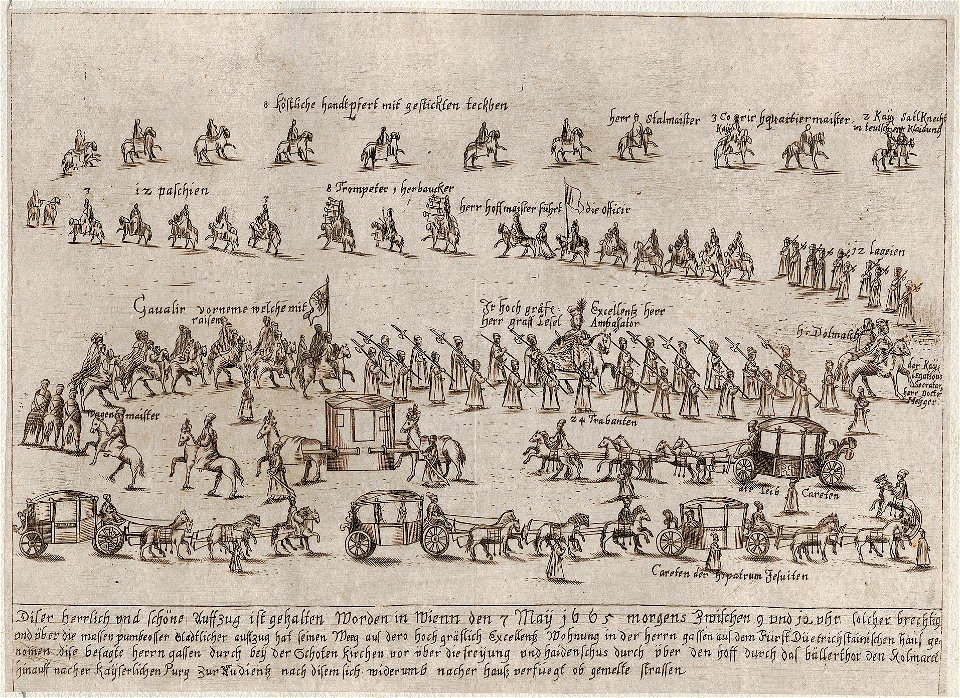 8 köstliche handtpfert mit gestickten teckhen
herr Stalmaister
3 Co
quartiermaister
2 Kaÿ Satlknecht
in teutscher Klaidung
3
12 paschien
8 Trompeter 1 herbaucker
herr hoffmaister führt die officir
12 lageien
Gaualir vorneme welche mit
raisen
Ir hoch gräfe Excellentz herr
herr graff Lesel Ambasator
hr Dolmatsch
der Kaÿ
Legation
Secretari
herr Doctor
Metzger
wagenmaister
24 Trabanten
die Leib Careten
Careten der hr patrum Jesuiten
Diser herrlich vnd schöne Auffzug ist gehalten Worden in Wienn den 7 Maÿ 1665 morgens Zwischen 9 vnd 10 vhr solcher brechtig
vnd vber die massen pumposser Stadtlicher auffzug hat seinen Weeg auf dero hoch gräflich Excellentz Wohnung in der herrn gassen auß dem Fürst Dietrichstainischen hauß ge
nomen die besagte herrn gassen durch beÿ der Schoten Kirchen vor vber die freÿung vnd haidenschus durch vber den hoff durch das bällerthor den Kolmarct
hinauff nacher Kaÿserlichen Purg Zur Audientz nach disem sich widerumb nacher hauß verfuegt ob gemelte strassen